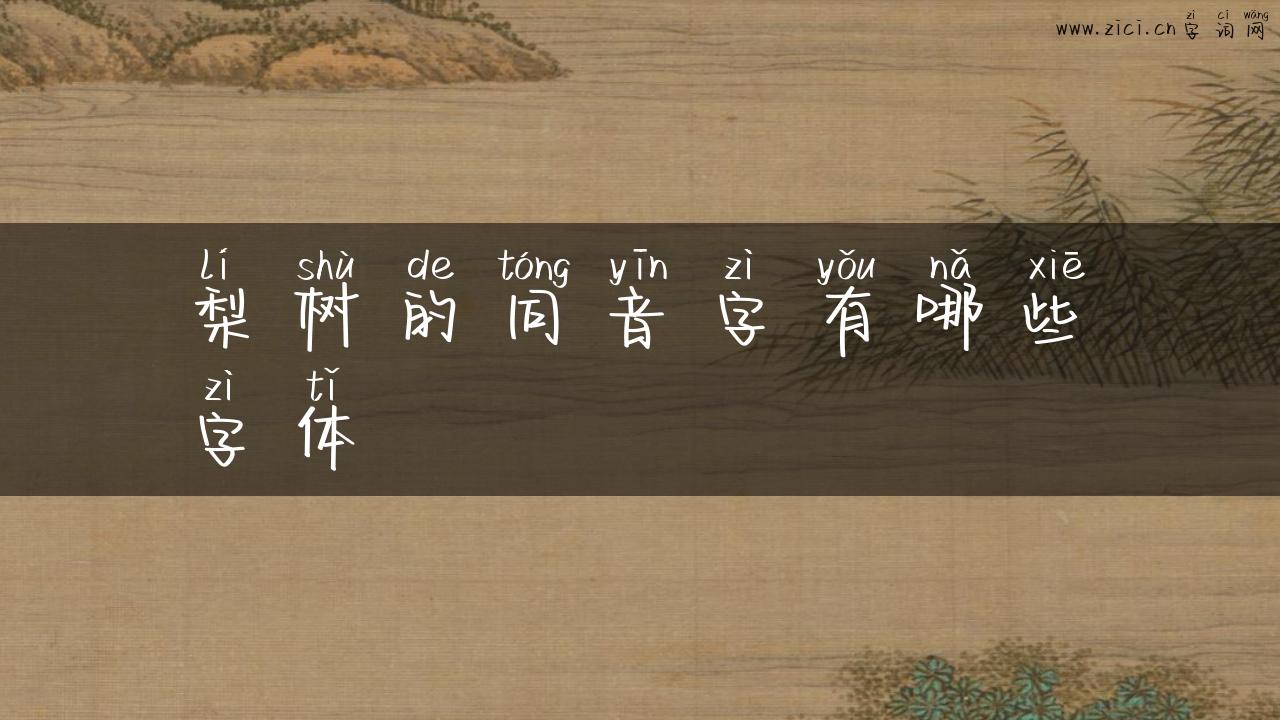 zì cí wǎng
www.zici.cn 字词网
lí shù de tóng yīn zì yǒu nǎ xiē
梨树的同音字有哪些
zì tǐ
字体